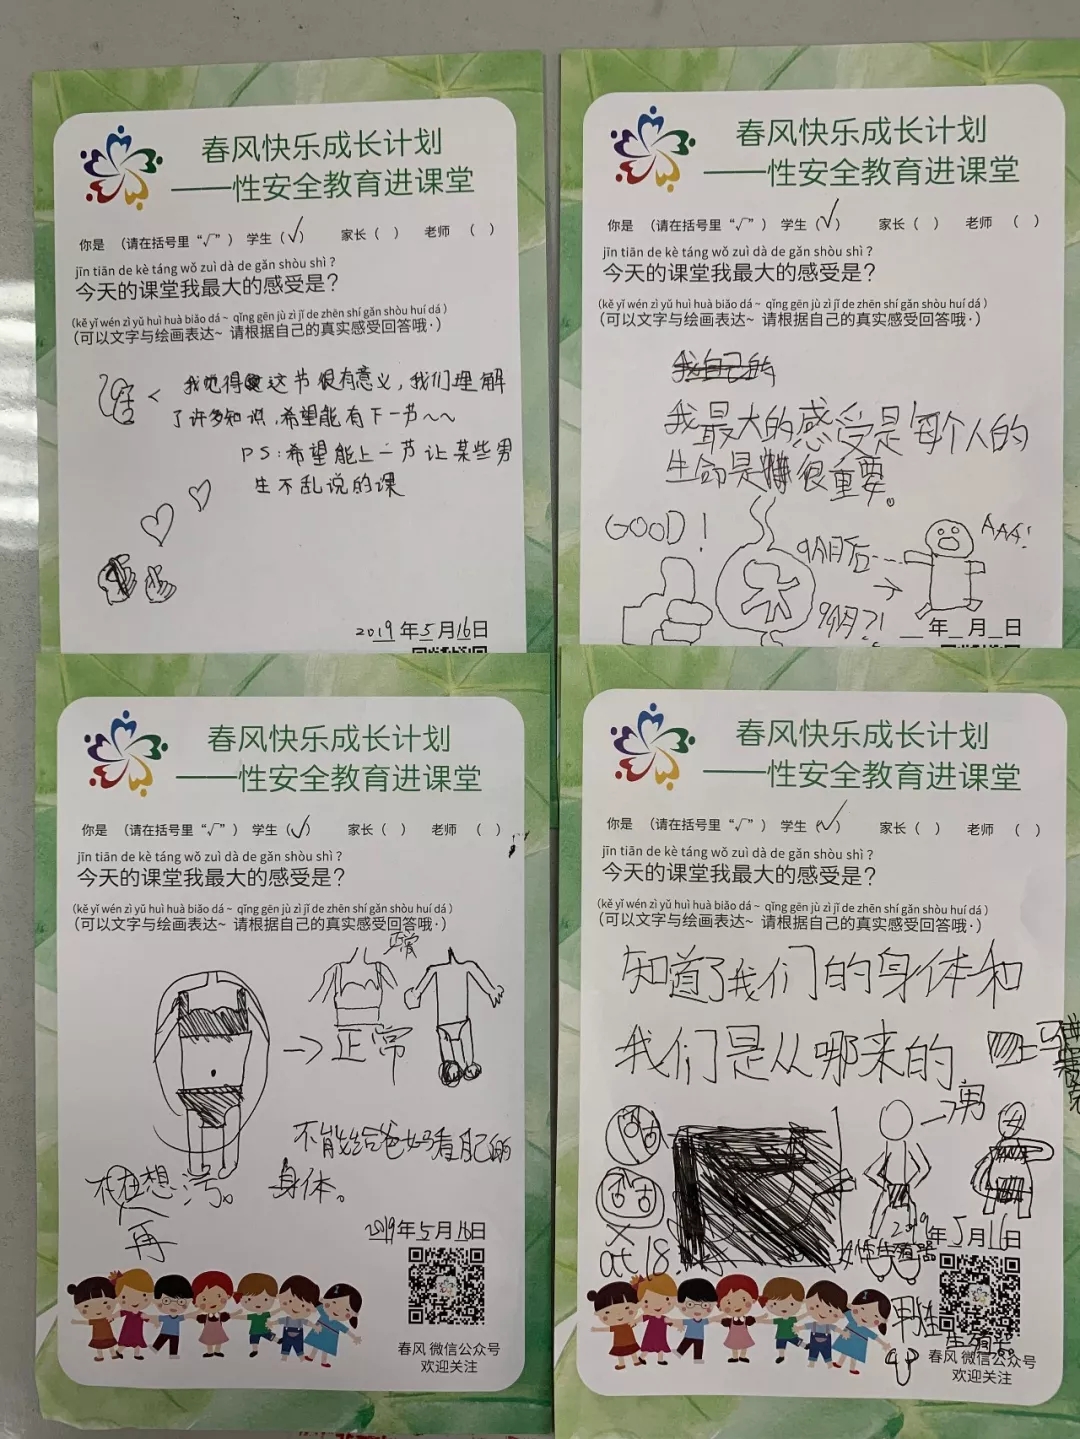 春风快乐成长计划
——性安全教育进课堂
你是 （请在括号里“√”） 学生（√） 家长（ ） 老师 （ ）
jīn tiān de kè táng wǒ zuì dà de gǎn shòu shì ?
今天的课堂我最大的感受是?
(kě yǐ wén zì yǔ huì huà biǎo dá ~ qǐng gēn jù zì jǐ de zhēn shí gǎn shòu huí dá )
(可以文字与绘画表达~ 请根据自己的真实感受回答哦·)
我觉得这节很有意义，我们理解
了许多知识，希望能有下一节~~
PS:希望能上一节让某些男
生不乱说的课
2019年5月16日
春风快乐成长计划
——性安全教育进课堂
你是 （请在括号里“√”） 学生（√） 家长（ ） 老师 （ ）
jīn tiān de kè táng wǒ zuì dà de gǎn shòu shì ?
今天的课堂我最大的感受是?
(kě yǐ wén zì yǔ huì huà biǎo dá ~ qǐng gēn jù zì jǐ de zhēn shí gǎn shòu huí dá )
(可以文字与绘画表达~ 请根据自己的真实感受回答哦·)
我自己的
我最大的感受是每个人的
生命是很重要。
GOOD!
9个月后···
AAA!
9个月?!
年 月 日
春风快乐成长计划
——性安全教育进课堂
你是 （请在括号里“√”） 学生（√） 家长（ ） 老师 （ ）
jīn tiān de kè táng wǒ zuì dà de gǎn shòu shì ?
今天的课堂我最大的感受是?
(kě yǐ wén zì yǔ huì huà biǎo dá ~ qǐng gēn jù zì jǐ de zhēn shí gǎn shòu huí dá )
(可以文字与绘画表达~ 请根据自己的真实感受回答哦·)
正常
→正常
不能给爸妈看自己的
身体。
在想污。
再
2019年5月16日
春风 微信公众号
欢迎关注
春风快乐成长计划
——性安全教育进课堂
你是 （请在括号里“√”） 学生（√） 家长（ ） 老师 （ ）
jīn tiān de kè táng wǒ zuì dà de gǎn shòu shì ?
今天的课堂我最大的感受是?
(kě yǐ wén zì yǔ huì huà biǎo dá ~ qǐng gēn jù zì jǐ de zhēn shí gǎn shòu huí dá )
(可以文字与绘画表达~ 请根据自己的真实感受回答哦·)
知道了我们的身体和
我们是从哪来的
男
at 18.
2019年5月16日
女性生殖器
男性
生殖器
春风 微信公众号
欢迎关注